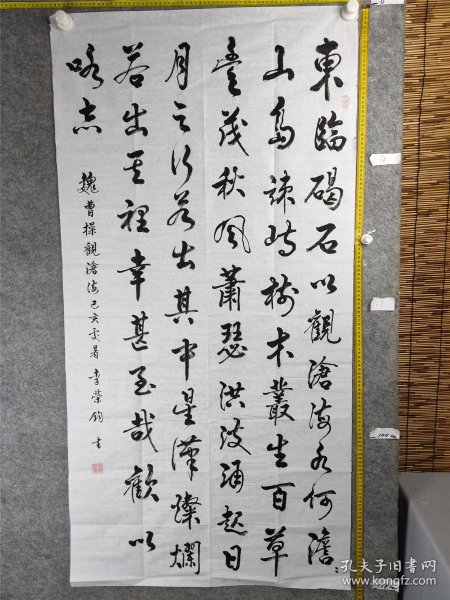 東臨碣石以觀滄海水何澹
山島竦峙樹木叢生百草
豐茂秋風蕭瑟洪波涌起日
月之行若出其中星漢燦爛
若出其裡幸甚至哉歡以
咏志
魏曹操觀滄海己亥暑李榮鈞書
孔夫子旧书网
www.kongfz.com